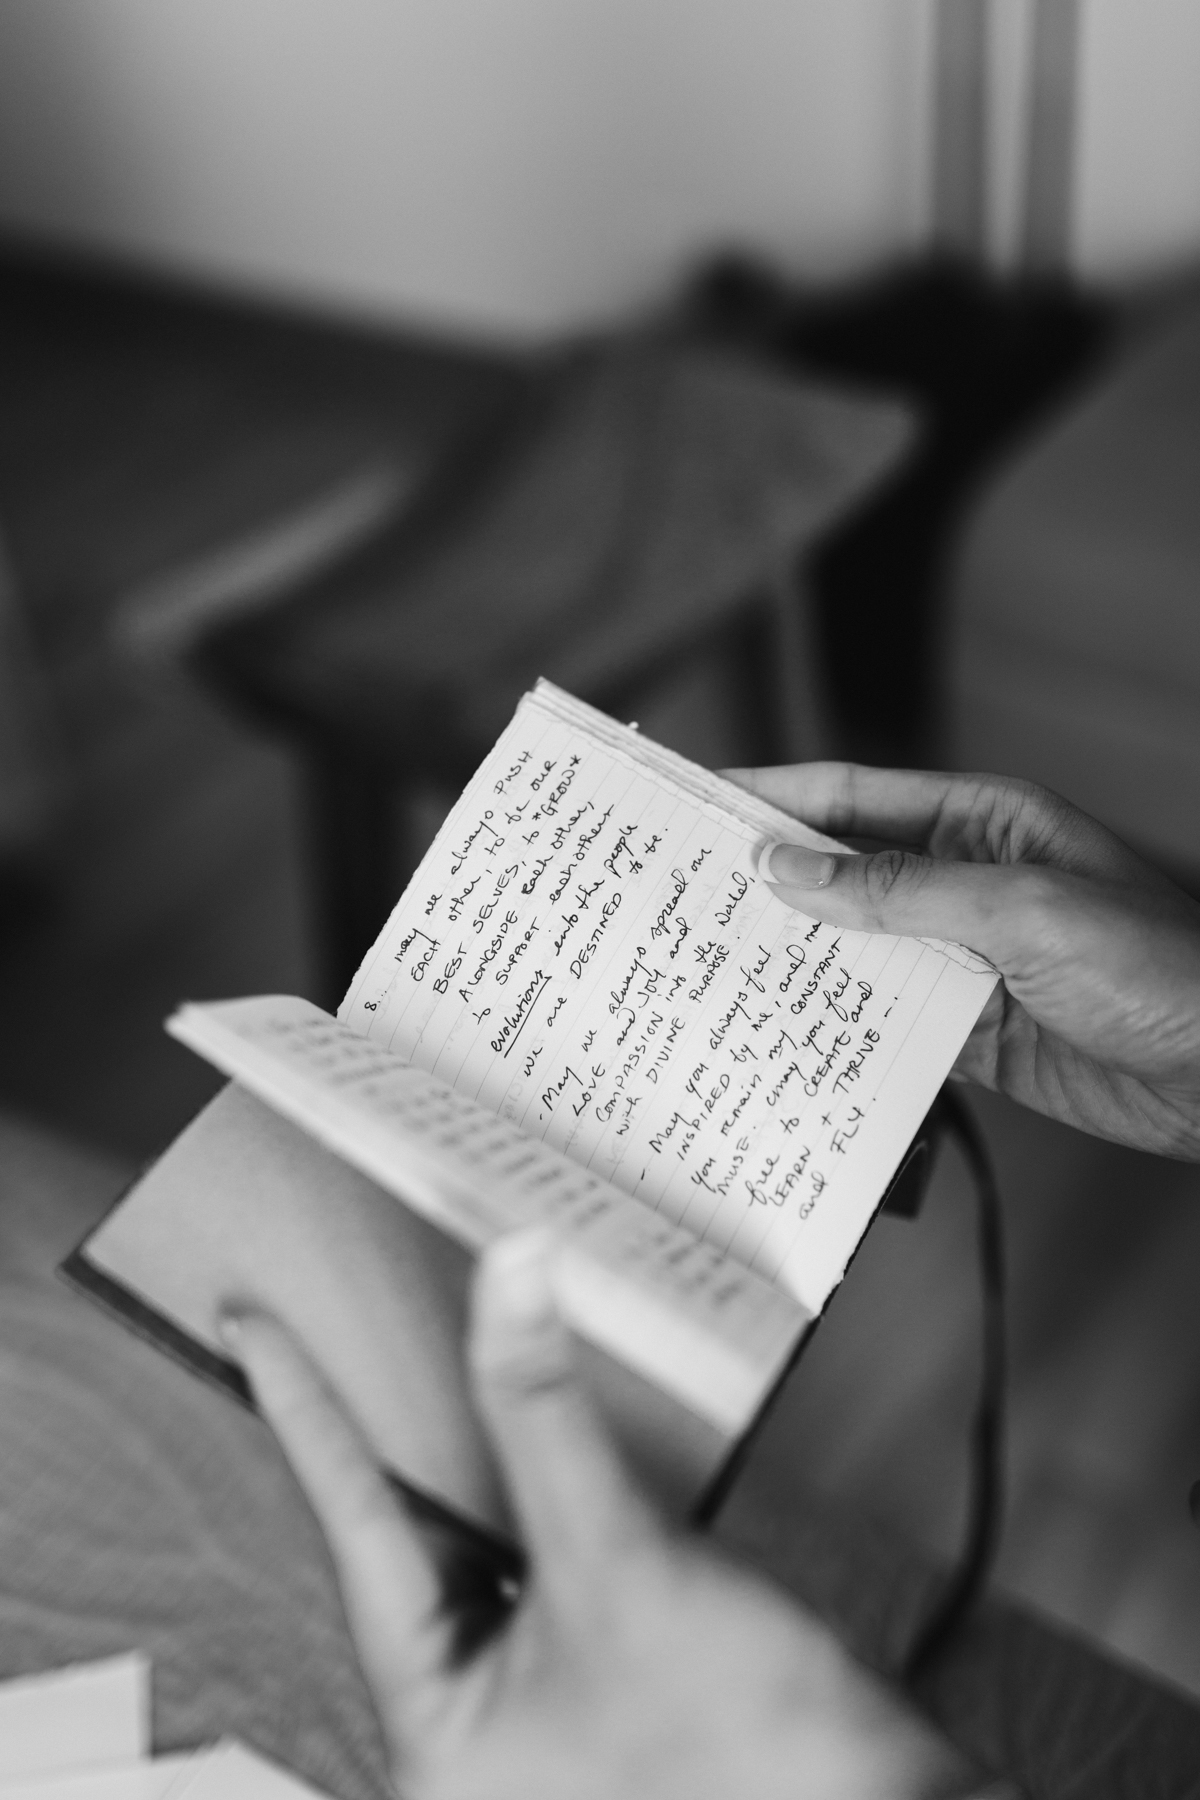 8... may we always PUSH
EACH other, to be our
BEST SELVES, to *GROW*
ALONGSIDE Each other,
to SUPPORT each others
evolutions into the people
we are DESTINED to be.
- May we always spread our
LOVE and JOY and
COMPASSION into the World,
with DIVINE PURPOSE.
- May you always feel
INSPIRED by me, and ma
you remain my CONSTANT
MUSE. may you feel
free to CREATE and
LEARN + THRIVE -
and FLY.